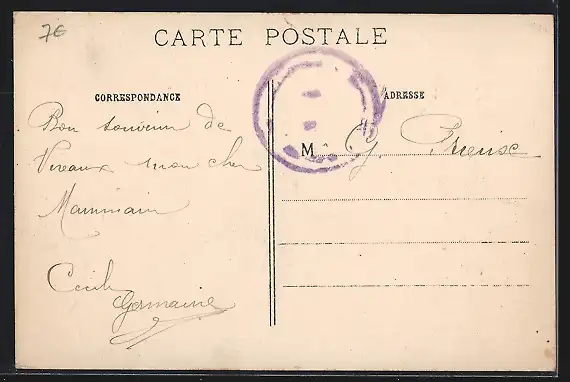 7€
CARTE POSTALE
CORRESPONDANCE
ADRESSE
Bon souvenir de
Viveaux mon cher
M G. Prieuse
Cécile
Germaine